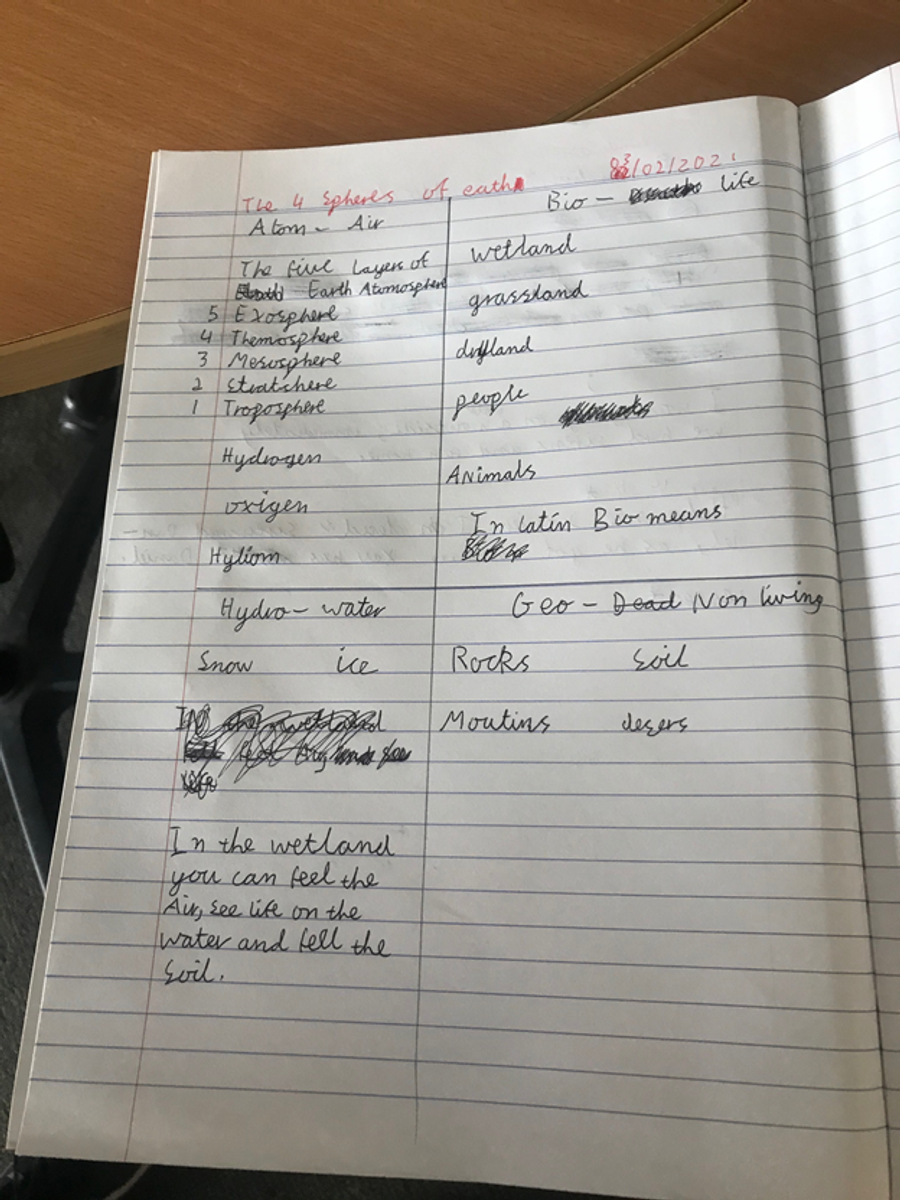 The 4 Spheres of eath
03/02/2021
Atom - Air
The five Layers of
Earth Atomosphere
5 Exosphere
4 Themosphere
3 Mesosphere
2 Stratshere
1 Troposphere
Hydrogen
oxigen
Hyliom
Bio - life
wetland
grassland
dryland
people
Animals
In latin Bio means
Hydro - water
Snow ice
In the wetland
you can feel the
Air, see life on the
water and fell the
Soil.
Geo - Dead Non living
Rocks Soil
Moutins desers